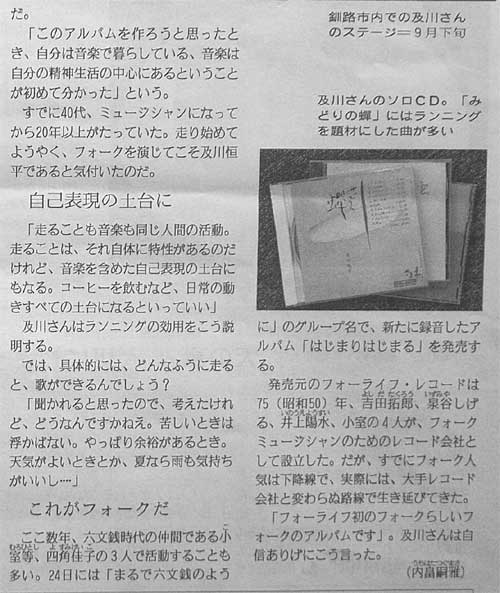 だ。
「このアルバムを作ろうと思ったと
き、自分は音楽で暮らしている、音楽は
自分の精神生活の中心にあるということ
が初めて分かった」という。
すでに40代、ミュージシャンになって
から20年以上がたっていた。走り始めて
ようやく、フォークを演じてこそ及川恒
平であると気付いたのだ。
自己表現の土台に
「走ることも音楽も同じ人間の活動。
走ることは、それ自体に特性があるのだ
けれど、音楽を含めた自己表現の土台に
もなる。コーヒーを飲むなど、日常の動
きすべての土台になるといっていい」
及川さんはランニングの効用をこう説
明する。
では、具体的には、どんなふうに走る
と、歌ができるんでしょう？
「聞かれると思ったので、考えたけれ
ど、どうなんですかねえ。苦しいときは
浮かばない。やっぱり余裕があるとき。
天気がよいときとか、夏なら雨も気持ち
がいいし‥‥」
これがフォークだ
ここ数年、六文銭時代の仲間である小
室等、四角佳子の３人で活動することも
多い。24日には「まるで六文銭のよう
釧路市内での及川さん
のステージ＝９月下旬
及川さんのソロＣＤ。「み
どりの蟬」にはランニング
を題材にした曲が多い
に」のグループ名で、新たに録音した
アルバム「はじまりはじまる」を発売す
る。
発売元のフォーライフ・レコードは
75（昭和50）年、吉田拓郎、泉谷しげ
る、井上陽水、小室の４人が、フォーク
ミュージシャンのためのレコード会社と
して設立した。だが、すでにフォーク人
気は下降線で、実際には、大手レコード
会社と変わらぬ路線で生き延びてきた。
「フォーライフ初のフォークらしいフ
ォークのアルバムです」。及川さんは自
信ありげにこう言った。
（内畠嗣雅）